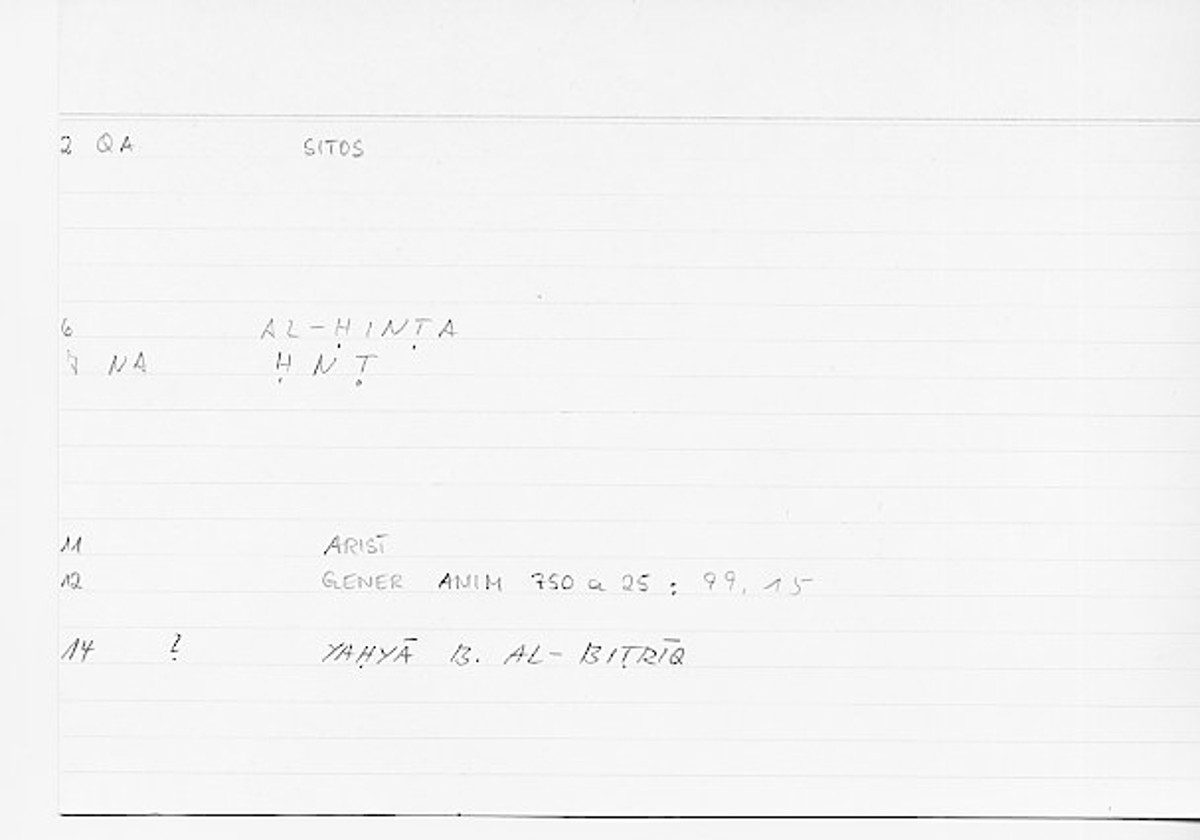 2 QA SITOS
6 AL-ḤINṬA
7 NA ḤNṬ
11 ARIST
12 GENER ANIM 750 a 25 : 99, 15
14 ? YAḤYĀ B. AL-BIṬRĪQ